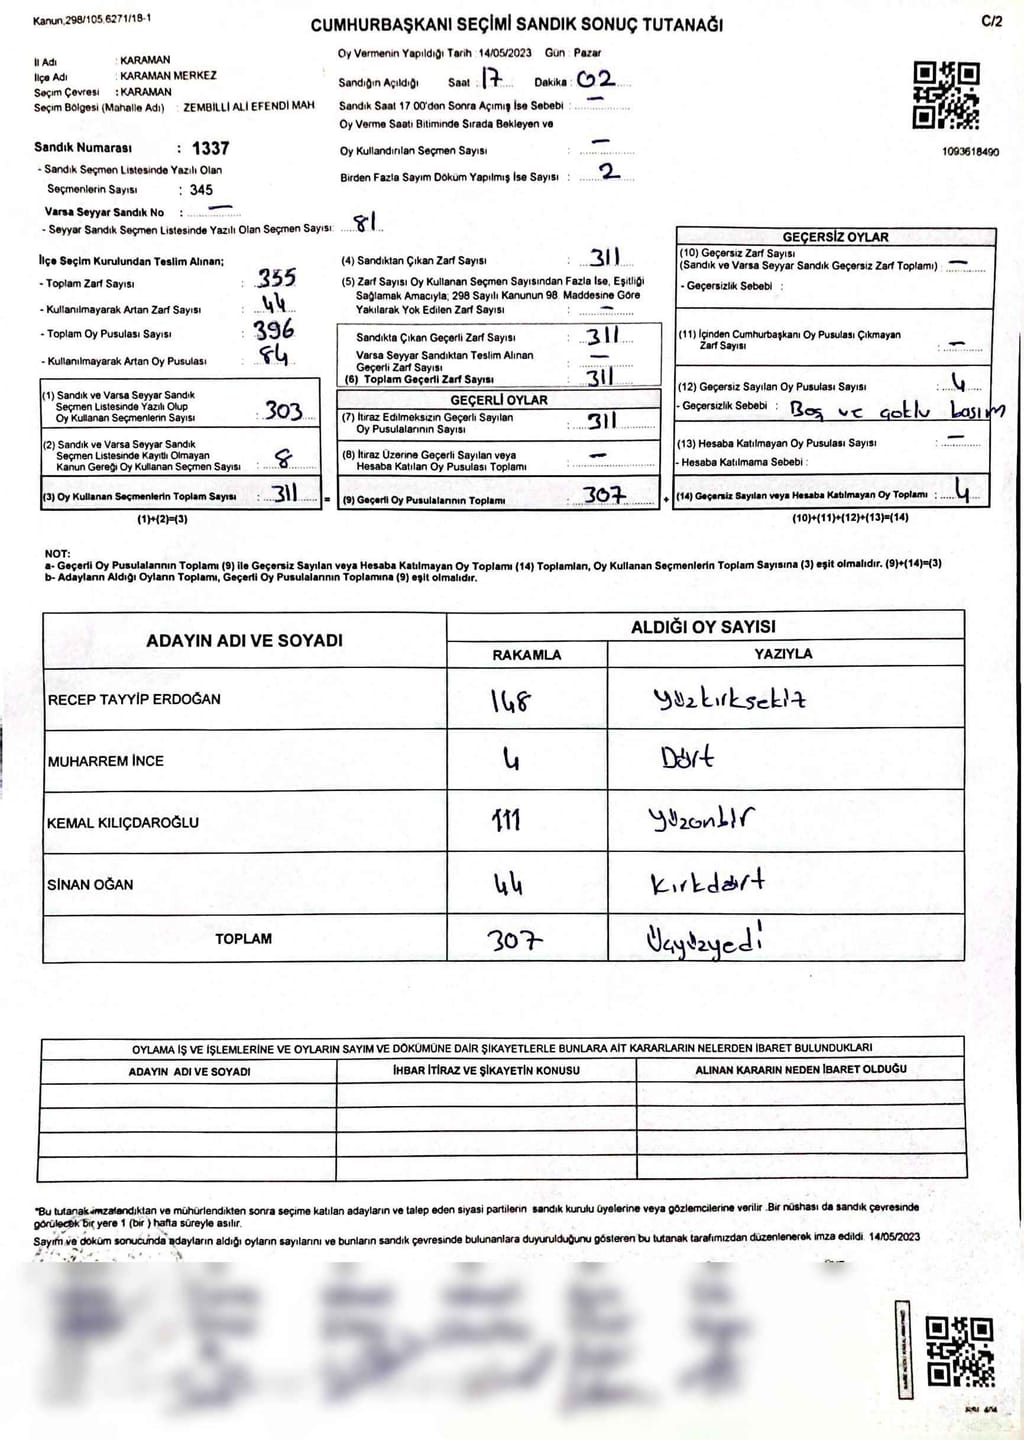 Kanun;298/105.6271/18-1
CUMHURBAŞKANI SEÇİMİ SANDIK SONUÇ TUTANAĞI
C/2
İl Adı : KARAMAN
İlçe Adı : KARAMAN MERKEZ
Seçim Çevresi : KARAMAN
Seçim Bölgesi (Mahalle Adı) : ZEMBİLLİ ALİ EFENDİ MAH
Sandık Numarası : 1337
- Sandık Seçmen Listesinde Yazılı Olan
Seçmenlerin Sayısı : 345
Varsa Seyyar Sandık No : —
- Seyyar Sandık Seçmen Listesinde Yazılı Olan Seçmen Sayısı: 81
Oy Vermenin Yapıldığı Tarih : 14/05/2023 Gün : Pazar
Sandığın Açıldığı Saat : 17 Dakika : 02
Sandık Saat 17 00'don Sonra Açımış İse Sebebi : —
Oy Verme Saati Bitiminde Sırada Bekleyen ve
Oy Kullandırılan Seçmen Sayısı : —
Birden Fazla Sayım Döküm Yapılmış İse Sayısı : 2
1093618490
İlçe Seçim Kurulundan Teslim Alınan;
- Toplam Zarf Sayısı : 355
- Kullanılmayarak Artan Zarf Sayısı : 44
- Toplam Oy Pusulası Sayısı : 396
- Kullanılmayarak Artan Oy Pusulası : 84
(1) Sandık ve Varsa Seyyar Sandık
Seçmen Listesinde Yazılı Olup
Oy Kullanan Seçmenlerin Sayısı : 303
(2) Sandık ve Varsa Seyyar Sandık
Seçmen Listesinde Kayıtlı Olmayan
Kanun Gereği Oy Kullanan Seçmen Sayısı : 8
(3) Oy Kullanan Seçmenlerin Toplam Sayısı : 311 =
(1)+(2)=(3)
(4) Sandıktan Çıkan Zarf Sayısı : 311
(5) Zarf Sayısı Oy Kullanan Seçmen Sayısından Fazla İse, Eşitliği
Sağlamak Amacıyla; 298 Sayılı Kanunun 98 Maddesine Göre
Yakılarak Yok Edilen Zarf Sayısı : —
Sandıkta Çıkan Geçerli Zarf Sayısı : 311
Varsa Seyyar Sandıktan Teslim Alınan
Geçerli Zarf Sayısı : —
(6) Toplam Geçerli Zarf Sayısı : 311
GEÇERLİ OYLAR
(7) İtiraz Edilmeksizin Geçerli Sayılan
Oy Pusulalarının Sayısı : 311
(8) İtiraz Üzerine Geçerli Sayılan veya
Hesaba Katılan Oy Pusulası Toplamı : —
(9) Geçerli Oy Pusulalarının Toplamı : 307 +
GEÇERSİZ OYLAR
(10) Geçersiz Zarf Sayısı
(Sandık ve Varsa Seyyar Sandık Geçersiz Zarf Toplamı) : —
- Geçersizlik Sebebi :
(11) İçinden Cumhurbaşkanı Oy Pusulası Çıkmayan
Zarf Sayısı : —
(12) Geçersiz Sayılan Oy Pusulası Sayısı : 4
- Geçersizlik Sebebi : Boş ve çoklu basım
(13) Hesaba Katılmayan Oy Pusulası Sayısı : —
- Hesaba Katılmama Sebebi :
(14) Geçersiz Sayılan veya Hesaba Katılmayan Oy Toplamı : 4
(10)+(11)+(12)+(13)=(14)
NOT:
a- Geçerli Oy Pusulalarının Toplamı (9) ile Geçersiz Sayılan veya Hesaba Katılmayan Oy Toplamı (14) Toplamları, Oy Kullanan Seçmenlerin Toplam Sayısına (3) eşit olmalıdır. (9)+(14)=(3)
b- Adayların Aldığı Oyların Toplamı, Geçerli Oy Pusulalarının Toplamına (9) eşit olmalıdır.
ADAYIN ADI VE SOYADI
ALDIĞI OY SAYISI
RAKAMLA YAZIYLA
RECEP TAYYİP ERDOĞAN 148 Yüzkırksekiz
MUHARREM İNCE 4 Dört
KEMAL KILIÇDAROĞLU 111 Yüzonbir
SİNAN OĞAN 44 Kırkdört
TOPLAM 307 Üçyüzyedi
OYLAMA İŞ VE İŞLEMLERİNE VE OYLARIN SAYIM VE DÖKÜMÜNE DAİR ŞİKAYETLERLE BUNLARA AİT KARARLARIN NELERDEN İBARET BULUNDUKLARI
ADAYIN ADI VE SOYADI İHBAR İTİRAZ VE ŞİKAYETİN KONUSU ALINAN KARARIN NEDEN İBARET OLDUĞU
*Bu tutanak imzalandıktan ve mühürlendikten sonra seçime katılan adayların ve talep eden siyasi partilerin sandık kurulu üyelerine veya gözlemcilerine verilir .Bir nüshası da sandık çevresinde
görülecek bir yere 1 (bir ) hafta süreyle asılır.
Sayım ve döküm sonucunda adayların aldığı oyların sayılarını ve bunların sandık çevresinde bulunanlara duyurulduğunu gösteren bu tutanak tarafımızdan düzenlenerek imza edildi. 14/05/2023